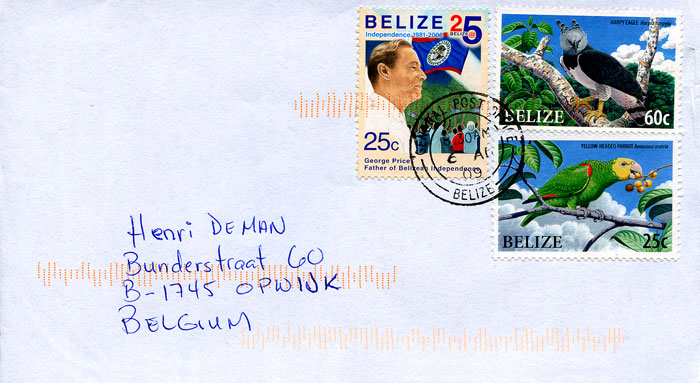 BELIZE 25
BELIZE
Independence 1981-2006
25c
George Price
Father of Belizean Independence
HARPY EAGLE
BELIZE 60c
YELLOW-HEADED PARROT Amazona oratrix
BELIZE 25c
POST
AM
09
BELIZE
Henri DEMAN
Bunderstraat 60
B-1745 OPWIJK
BELGIUM